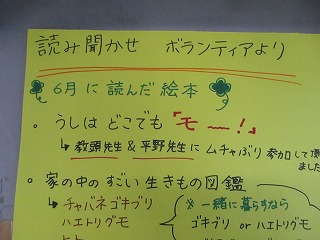 読み聞かせ ボランティアより
6月に読んだ絵本
。うしは どこでも「モ〜〜!」
↳教頭先生&平野先生に ムチャぶり 参加して頂
ました
。家の中の すごい 生きもの図鑑
↳チャバネゴキブリ
ハエトリグモ
ヒト
※一緒に暮らすなら
ゴキブリ or ハエトリグモ